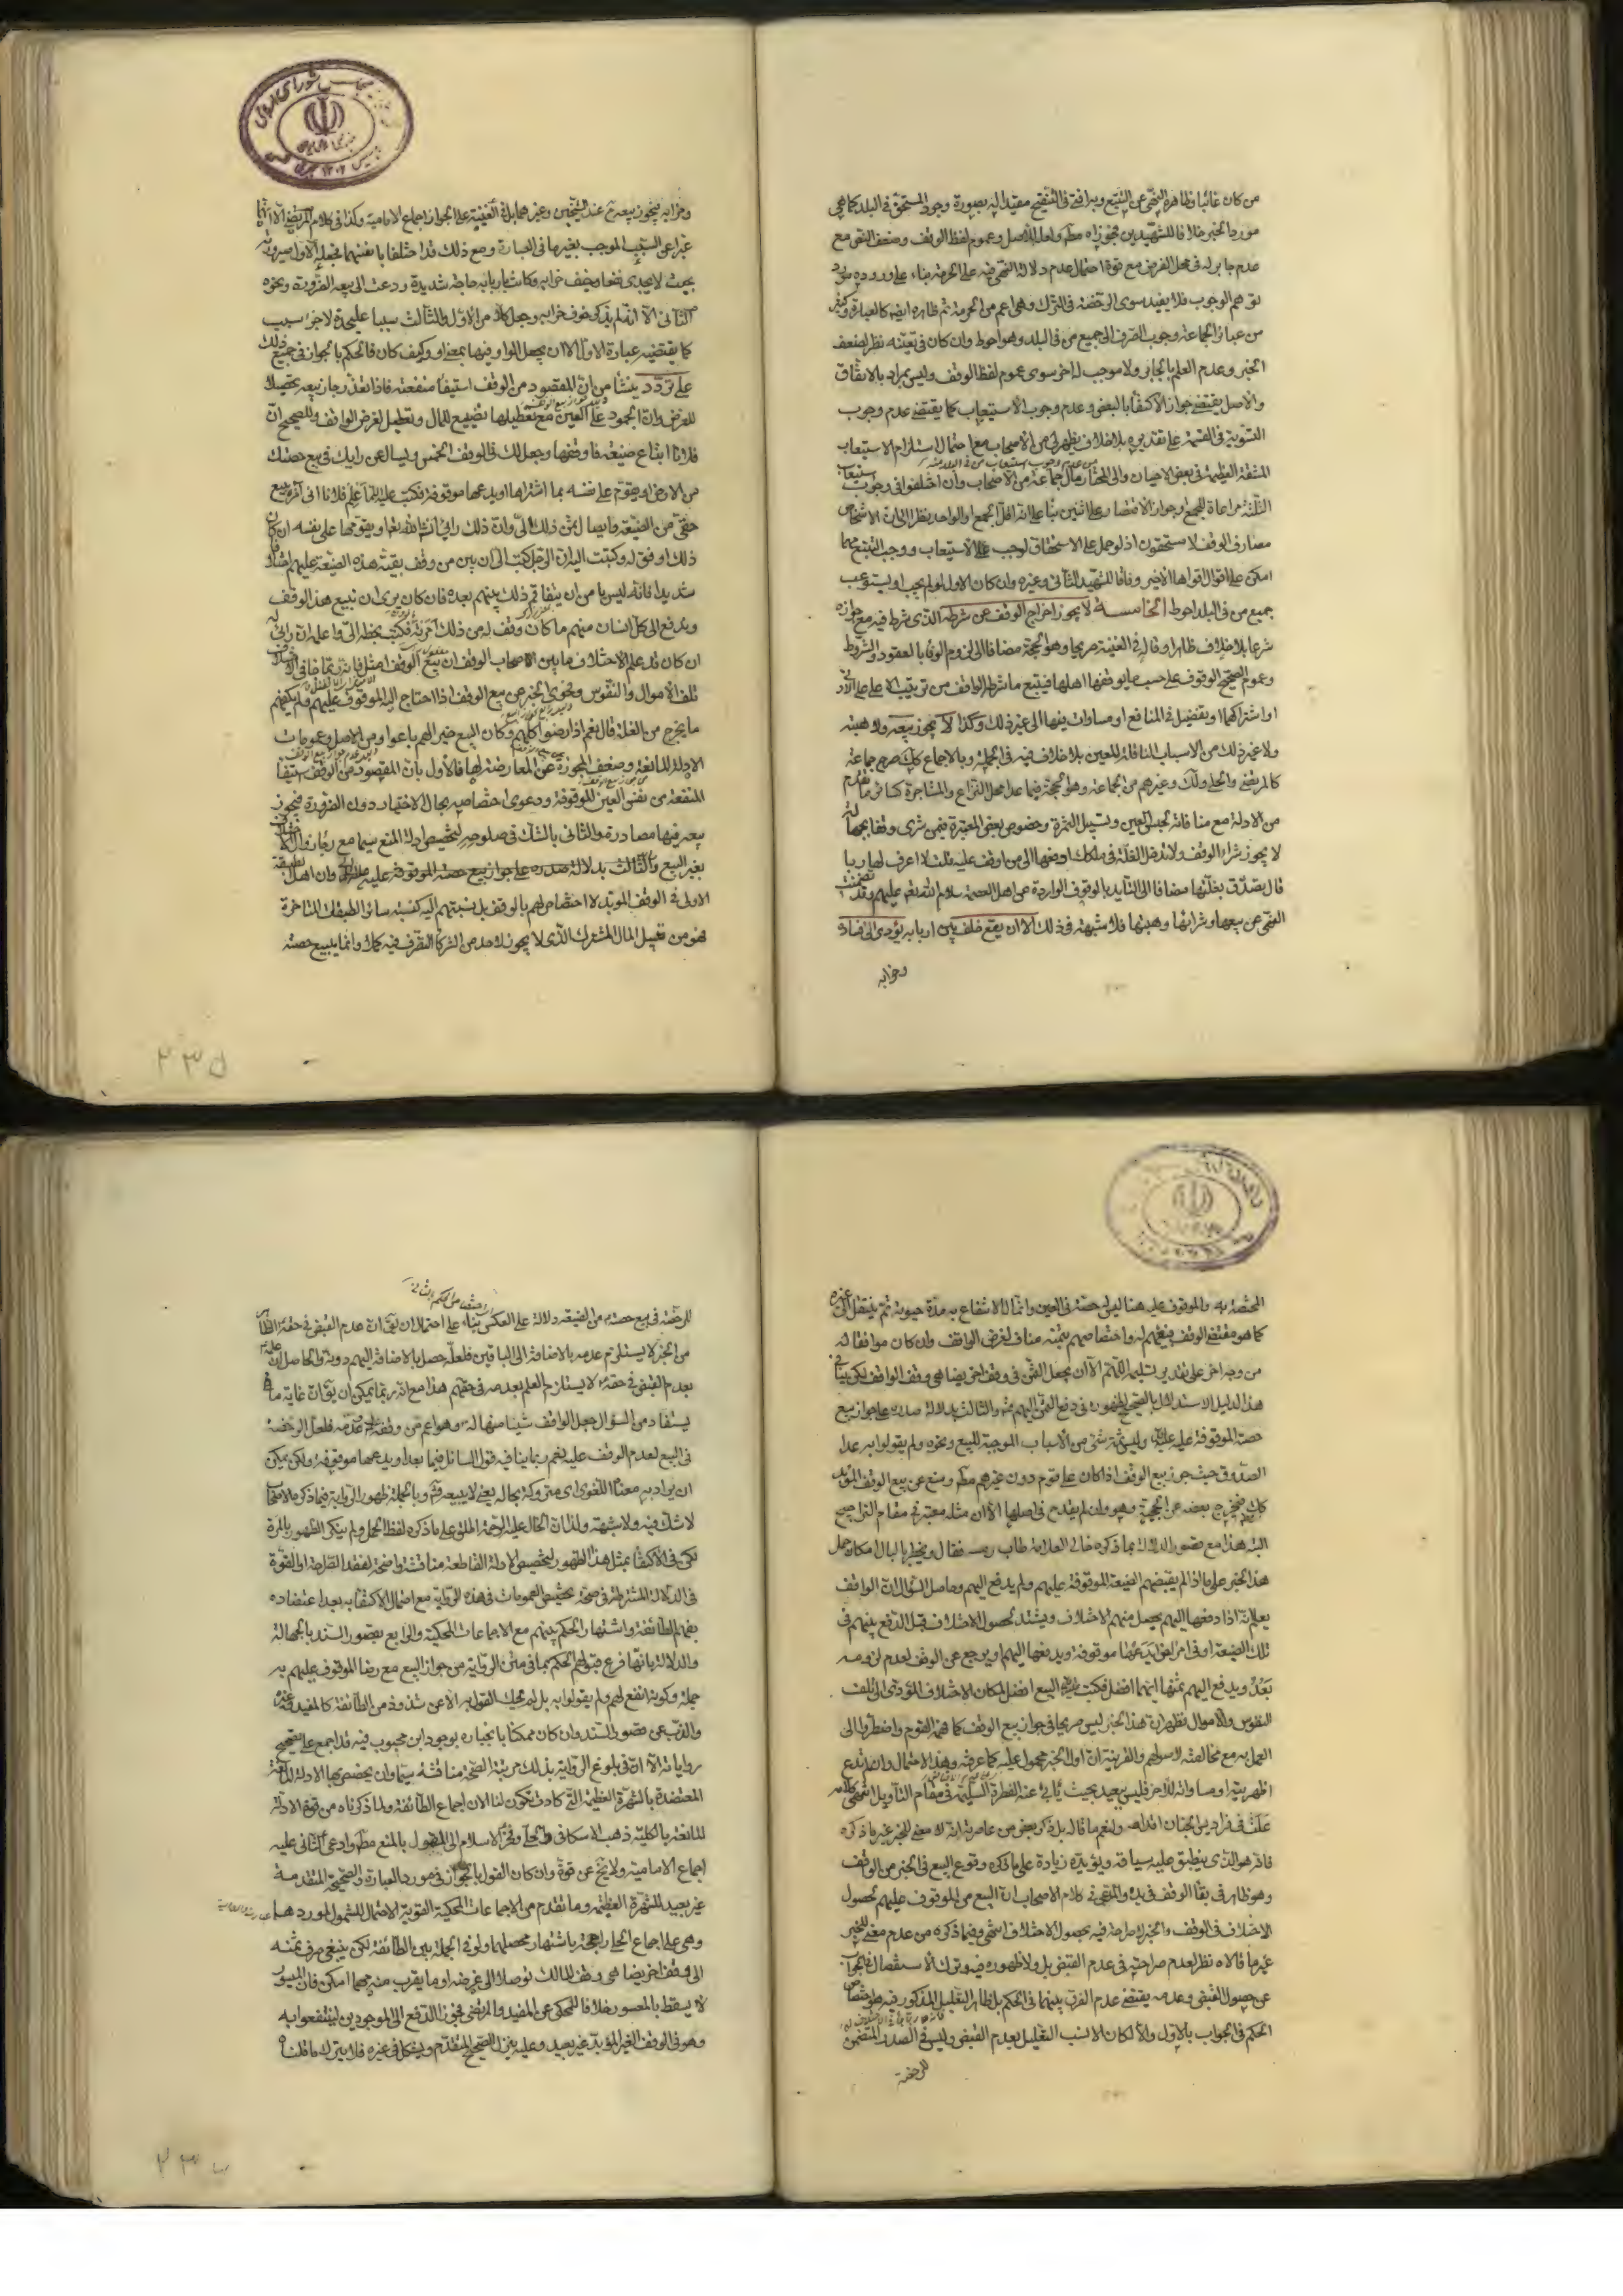 من كان غائبا وظاهره النهي عن التتبع وبه افتى في التنقيح مقيدا له بصورة وجود المستحق في البلد كما هي
مورد الخبر خلافا للشهيدين فجوزاه عملا بالاصل وعموم لفظ الوقف وضعف النهي مع
عدم جابر له في محل الفرض مع قوة احتمال عدم دلالة النهي فيه على الحرمة بناء على وروده مورد
توهم الوجوب فلا يفيد سوى الرخصة في الترك وهي اعم من الحرمة ثم ظاهره ايضا كالعبارة وكثير
من عبائر الجماعة وجوب الصرف الى جميع من في البلد وهو احوط وان كان في تعينه نظر لضعف
الخبر وعدم العلم بالجابر ولا موجب له اخر سوى عموم لفظ الوقف وليس بمراد بالاتفاق
والاصل يقتضي جواز الاكتفا بالبعض وعدم وجوب الاستيعاب كما يقتضي عدم وجوب
التسوية في القسمة على تقديره بلا خلاف يظهر لي من الاصحاب مع احتمال استلزام الاستيعاب
المشقة العظيمة في بعض الاحيان والى المختار مال جماعة من الاصحاب وان اختلفوا في وجوب استيعاب
الثلثة مراعاة للجمع او جواز الاقتصار على اثنين بناء على انه اقل الجمع او الواحد نظرا الى ان الاشخاص
مصارف الوقف لا مستحقون اذ لو حمل على الاستحقاق لوجب الاستيعاب ووجب التتبع مهما
امكن على اقوال اقواها الاخير وفاقا للشهيد الثاني وغيره وان كان الاول لو لم يجب او يستوعب
جميع من في البلد احوط الخامسة لا يجوز اخراج الوقف عن شرطه الذي شرط فيه مع جوازه
شرعا بلا خلاف ظاهرا وقال في الغنية صريحا وهو الحجة مضافا الى لزوم الوفا بالعقود والشروط
وعموم الصحيح الوقوف على حسب ما يوقفها اهلها فيتبع ما شرطه الواقف من ترتيب الاعلى على الادنى
او اشتراكهما او تفضيل في المنافع او مساوات فيها الى غير ذلك وكذا لا يجوز بيعه ولا هبته
ولا غير ذلك من الاسباب الناقلة للعين بلا خلاف فيه في الجملة وبالاجماع كذلك صرح جماعة
كالمرتضى والحلي وغيرهم من الجماعة وهو الحجة فيما عدا محل النزاع والمشاجرة كسائر ما تقدم
من الادلة مع منافاته لحبس العين وتسبيل الثمرة وخصوص بعض المعتبرة فيمن شرى وقفا بجهالة
لا يجوز شراء الوقف ولا تدخل الغلة في ملكك ادفعها الى من اوقف عليه قلت لا اعرف لها ربا
قال تصدق بغلتها مضافا الى التأييد بالوقوف الواردة عن اهل العصمة سلام الله عليهم وقد تضمنت
النهي عن بيعها وشرائها وهبتها فلا شبهة في ذلك الا ان يقع خلف بين اربابه يؤدي الى فساده
وخرابه
وخرابه فيجوز بيعه عند الشيخين وغيرهما بل في الغنية على الجواز اجماع الامامية وكذا في كلام المرتضى الا انهما
عبرا عن السبب الموجب بغيرها في العبارة ومع ذلك قد اختلفا بانفسهما فجعله الاول صيرورته
بحيث لا يجدي نفعا وخيف خرابه وكانت باربابه حاجة شديدة ودعت الى بيعه الضرورة ونحوه
الثاني الا انه لم يذكر خوف خرابه وجعل كلا من الاول والثالث سببا عليحدة لا جزء سبب
كما يقتضيه عبارة الاول الا ان يجعل الواو فيها بمعنى او وكيف كان فالحكم بالجواز في جميع ذلك
على تردد ينشأ من ان المقصود من الوقف استيفا منفعته فاذا تعذر جاز بيعه تحصيلا
للغرض وان الجمود على العين مع تعطيلها تضييع للمال وتعطيل لغرض الواقف وللصحيح ان
فلانا ابتاع ضيعة فاوقفها وجعل لك في الوقف الخمس ويسأل عن رايك في بيع حصتك
من الارض او يقوم على نفسه بما اشتراها او يدعها موقوفة فكتب الي اعلم فلانا اني آمره ببيع
حقي من الضيعة وايصال ثمن ذلك الي وان ذلك رايي انشاء الله تعالى او يقومها على نفسه ان كان
ذلك اوفق له وكتبت اليه ان الرجل كتب الي ان بين من وقف بقية هذه الضيعة عليهم اختلافا
شديدا فانه ليس يأمن ان يتفاقم ذلك بينهم بعده فان كان يرى ان تبيع هذا الوقف
ويدفع الى كل انسان منهم ما كان وقف له من ذلك امرته فكتب بخطه الي واعلمه ان رايي له
ان كان قد علم الاختلاف ما بين الاصحاب الوقف ان يبيع الوقف امثل فانه ربما جاء في الاختلاف
تلف الاموال والنفوس ونحوى الخبر عن بيع الوقف اذا احتاج اليه الموقوف عليهم فلم يكفهم
ما يخرج من الغلة قال نعم اذا رضوا كلهم وكان البيع خير لهم باعوا ومن الاصل وعمومات
الادلة المانعة وضعف المجوزة عن المعارضة لها فالاول بان المقصود من الوقف استيفا
المنفعة من نفس العين الموقوفة ودعوى اختصاصه بحال الاختيار دون الضرورة فيجوز
بيعه فيها مصادرة والثاني بالشك في صلوحه لتخصيص ادلة المنع سيما مع رجاء زوال الاختلاف
بغير البيع والثالث بدلالة صدره على جواز بيع حصته الموقوفة عليه وان اهل الطبقة
الاولى في الوقف المؤبد لا اختصاص لهم بالوقف بل نسبتهم اليه كنسبة سائر الطبقات المتاخرة
فهو من قبيل المال المشترك الذي لا يجوز لاحد من الشركا التصرف فيه كملا وانما يبيع حصته
٢٣٥
المختصة به والموقوف عليه هنا ليس له حصة في العين وانما له الانتفاع به مدة حيوته ثم ينتقل الى غيره
كما هو مقتضى الوقف فبيعهم له واختصاصهم بثمنه مناف لغرض الواقف وان كان موافقا له
من وجه اخر على تقدير تسليمه اللهم الا ان يجعل الثمن في وقف اخر يضاهي وقف الواقف لكن ينافي
هذا الدليل الاستدلال بالصحيح لظهوره في دفع الثمن اليهم والثالث بدلالة صدره على جواز بيع
حصة الموقوفة عليه وليس ثمة شئ من الاسباب الموجبة للبيع ونحوه ولم يقولوا به عدا
الصدوق حيث جوز بيع الوقف اذا كان على قوم دون غيرهم ومنع عن بيع الوقف المؤبد
كذلك فيخرج بعضه عن الحجية وهو وان لم يقدح في اصلها الا ان مثله معتبر في مقام التراجيح
البتة هذا مع قصور الدلالة بما ذكره خالي العلامة طاب رمسه فقال ويخطر بالبال امكان حمل
هذا الخبر على ما اذا لم يقبضهم الضيعة الموقوفة عليهم ولم يدفع اليهم وحاصل السؤال ان الواقف
يعلم انه اذا دفعها اليهم يحصل منهم الاختلاف ويشتد لحصول الاختلاف قبل الدفع بينهم في
تلك الضيعة او في امر اخر ايدعها موقوفة ويدفعها اليهم او يرجع عن الوقف لعدم لزومه
بعد ويدفع اليهم ثمنها ايهما افضل فكتب البيع افضل لمكان الاختلاف المؤدي الى تلف
النفوس والاموال فظهر ان هذا الخبر ليس صريحا في جواز بيع الوقف كما فهمه القوم واضطروا الى
العمل به مع مخالفته لاصولهم والقرينة ان اول الخبر محمول عليه كما عرفته وهذا الاحتمال وان لم ندع
اظهريته او مساواته للاخر فليس ببعيد بحيث يأبى عنه الفطرة السليمة في مقام التأويل انتهى كلامه
علت في فراديس الجنان اقدامه ولنعم ما قاله بل ذكر بعض من عاصرناه انه لا معنى للخبر غير ما ذكره
فانه هو الذي ينطبق عليه سياقه ويؤيده زيادة على ما ذكره وقوع البيع في الخبر من الواقف
وهو ظاهر في بقا الوقف في يده والمرتضى كلام الاصحاب ان البيع من الموقوف عليهم لحصول
الاختلاف في الوقف والخبر لا صراحة فيه بحصول الاختلاف انتهى وفيما ذكره من عدم معنى للخبر
غير ما قالاه نظر لعدم صراحته في عدم القبض بل ولا ظهوره فيه وترك الاستفصال في الجواب
عن حصول القبض وعدمه يقتضي عدم الفرق بينهما في الحكم بل ظاهر التعليل المذكور فيه هو اختصاص
الحكم في الجواب بالاول والا لكان الانسب التعليل بعدم القبض وليس في الصدر المتضمن
للرخصة
للرخصة في بيع حصته من الضيعة دلالة على العكس بناء على احتمال ان يقال ان عدم القبض في حقه الظاهر
من الخبر لا يستلزم عدمه بالاضافة الى الباقين فلعله حصل بالاضافة اليهم دونه والحاصل ان علمه
بعدم القبض في حقه لا يستلزم العلم بعدمه في حقهم هذا مع انه ربما يمكن ان يقال ان غاية ما
يستفاد من السؤال جعل الواقف شيئا منها له وهو اعم من وقفه عليه وعدمه فلعل الرخصة
في البيع لعدم الوقف عليه نعم ربما ينافيه قول السائل فيما بعد او يدعها موقوفة ولكن يمكن
ان يراد به معناه اللغوي اي متروكة بحالها يعني لا يبيعه وبالجملة ظهور الرواية فيما ذكره الاصحاب
لا شك فيه ولا شبهة ولذا ان الخال عليه الرحمة اطلق على ما ذكره لفظ الحمل ولم ينكر الظهور بالمرة
لكن في الاكتفا بمثل هذا الظهور لتخصيص الادلة القاطعة مناقشة واضحة لفقد التقاوم اي القوة
في الدلالة المشترطة في صحة تخصيص العمومات في هذه الرواية مع احتمال الاكتفا به بعد اعتضاده
بفهم الطائفة واشتهار الحكم بينهم مع الاجماعات المحكية والرابع بقصور السند بالجهالة
والدلالة بانها فرع قبولهم الحكم بما في متن الرواية من جواز البيع مع رضا الموقوف عليهم به
جملة وكونه انفع لهم ولم يقولوا به بل لم يحك القول به الا عن شذوذ من الطائفة كالمفيد وغيره
والذب عن قصور السند وان كان ممكنا بانجباره بوجود ابن محبوب فيه قد اجمع على تصحيح
رواياته الا ان في بلوغ الرواية بذلك مرتبة الصحة مناقشة سيما وان يخصص بها الادلة المانعة
المعتضدة بالشهرة العظيمة التي كادت تكون لنا الان اجماع الطائفة ولما ذكرناه من قوة الادلة
المانعة بالكلية ذهب الاسكافي والحلي وفخر الاسلام الى القول بالمنع مطلقا وادعى الثاني عليه
اجماع الامامية ولا يخ عن قوة وان كان القول بالجواز في مورد العبارة والصحيحة المتقدمة
غير بعيد للشهرة العظيمة وما تقدم من الاجماعات المحكية القوية الاحتمال للشمول لموردهما
وهي على اجماع الحلي راجحة باشتهار محصلها ولو في الجملة بين الطائفة لكن ينبغي صرف ثمنه
الى وقف اخر يضاهي وقف المالك توصلا الى غرضه او ما يقرب منه مهما امكن فان الميسور
لا يسقط بالمعسور خلافا للمحكي عن المفيد والمرتضى فجوزا الدفع الى الموجودين لينتفعوا به
وهو في الوقف الغير المؤبد غير بعيد وعليه ينزل الصحيح المتقدم ويشكل في غيره فلا يترك ما قلناه